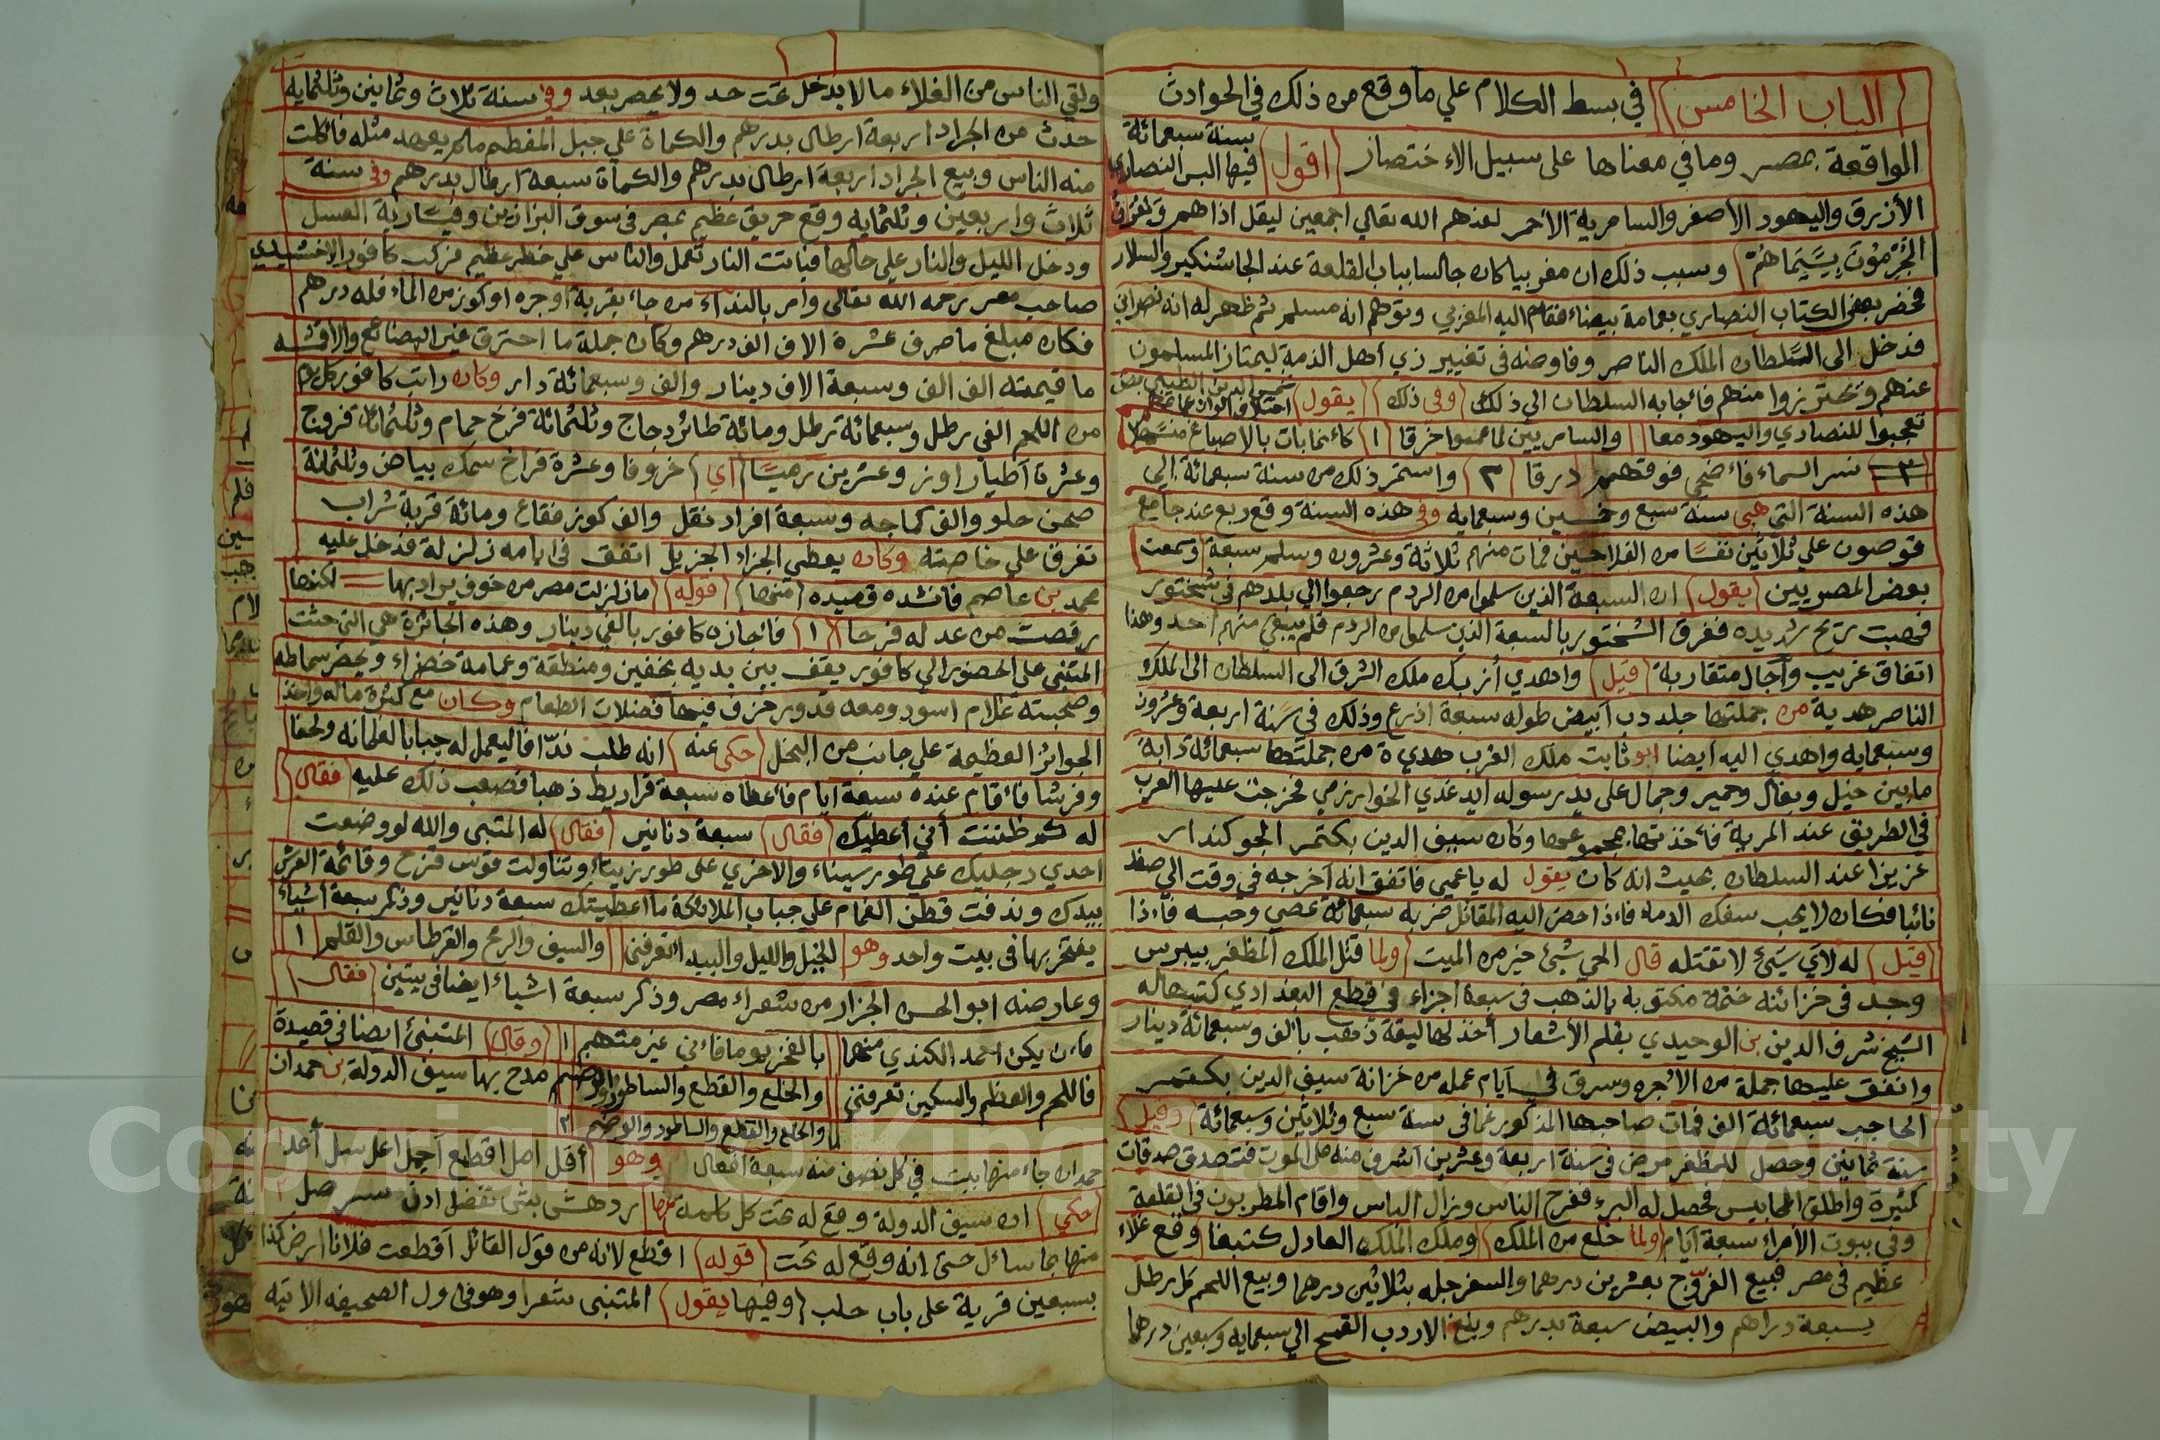 الباب الخامس في بسط الكلام علي ما وقع من ذلك في الحوادث
الواقعة بمصر وما في معناها على سبيل الاختصار اقول بسنة سبعمائة فيها البس النصاري
الأزرق واليهود الأصفر والسامرية الاحمر لعنهم الله تعالي اجمعين ليقل اذاهم
وسبب ذلك ان مغربيا كان جالسا بباب القلعة عند الجاشنكير والسلار
فحضر بعض الكتاب النصاري بعمامة بيضاء فقام اليه المغربي وتوهم انه مسلم ثم ظهر له انه نصراني
فدخل الى السلطان الملك الناصر وفاوضه في تغيير زي أهل الذمة ليمتاز المسلمون
عنهم ويحترزوا منهم فأجابه السلطان الي ذلك وفي ذلك يقول شمس الدين الطيبي
تعجبوا للنصاري واليهود معا والسامريين لما عمموا خرقا ١ كأنما بات بالاصباغ
نسر السماء فأضحي فوقهم ذرقا ٢ واستمر ذلك من سنة سبعمائة الى
هذه السنة التي هي سنة سبع وخمسين وسبعمايه وفي هذه السنة وقع ربع عند جامع
قوصون علي ثلاثين نفسا من الفلاحين فمات منهم ثلاثة وعشرون وسلم سبعة وسمعت
بعض المصريين يقول ان السبعة الذين سلموا من الردم رجعوا الي بلدهم في شختور
فهبت ريح شديده فغرق الشختور بالسبعة الذين سلموا من الردم فلم يبقي منهم احد وهذا
اتفاق غريب وآجال متقاربة قيل واهدي أزبك ملك الشرق الى السلطان الى الملك
الناصر هدية من جملتها جلد دب ابيض طوله سبعة اذرع وذلك في سنة اربعة وعشرون
وسبعمايه واهدي اليه ايضا ابو ثابت ملك الغرب هدية من جملتها سبعمائة دابة
مابين خيل وبغال وحمير وجمال على يد رسوله ايدغدي الخوارزمي فخرجت عليها العرب
في الطريق عند المرية فأخذتها بمجموعها وكان سيف الدين بكتمر الجوكندار
عزيزا عند السلطان بحيث انه كان يقول له ياعمي فاتفق انه آخرجه في وقت الي صفد
نائبا فكان لا يحب سفك الدماء فاذا حضر اليه القاتل ضربه سبعمائة عصي وحبسه فاذا
قيل له لأي شيئ لا تقتله قال الحي شيئ خير من الميت ولما قتل الملك المظفر بيبرس
وجد في خزائنه ختمة مكتوبة بالذهب في سبعة اجزاء في قطع البغدادي كتبها له
الشيخ شرف الدين بن الوحيدي بقلم الأشعار أخذ لها ليقة ذهب بألف وسبعمائة دينار
وانفق عليها جملة من الاجره وسرق في آيام عمله من خزانة سيف الدين بكتمر
الحاجب سبعمائة الف فمات صاحبها المذكور غما في سنة سبع وثلاثين وسبعمائة وقيل
سنة ثمانين وحصل للمظفر مرض في سنة اربعة وعشرين اشرف منه على الموت فتصدق صدقات
كثيرة واطلق المحابيس فحصل له البرء ففرح الناس وزال الباس واقام المطربون في القلعة
وفي بيوت الأمراء سبعة آيام ولما خلع من الملك وملك الملك العادل كتبغا وقع غلاء
عظيم في مصر فبيع الفروج بعشرين درهما والسفرجله بثلاثين درهما وبيع اللحم كل رطل
بسبعة دراهم والبيض سبعة بدرهم وبلغ الاردب القمح الي سبعمايه وسبعين درهما
ولقي الناس من الغلاء مالا يدخل تحت حد ولا يحصر بعد وفي سنة ثلاث وثمانين وثلثمايه
حدث من الجراد اربعة ارطال بدرهم والكماة علي جبل المقطم مالم يعهد مثله فاكلت
منه الناس وبيع الجراد اربعة ارطال بدرهم والكمأة سبعة ارطال بدرهم وفي سنة
ثلاث واربعين وثلثمايه وقع حريق عظيم بمصر في سوق البزازين وقيسارية العسل
ودخل الليل والنار على حالها فباتت النار تعمل والناس علي خطر عظيم فركب كافور الاخشيدي
صاحب مصر رحمه الله تعالى وامر بالنداء من جاء بقربة أوجره او كوز من الماء فله درهم
فكان مبلغ ما صرف عشرة الاف الف درهم وكان جملة ما احترق غير البضائع والاقشه
ما قيمته الف الف وسبعة الاف دينار والف وسبعمائة دار وكان راتب كافور كل يوم
من اللحم الفي رطل وسبعمائة رطل ومائة طائر دجاج وثلثمائة فرخ حمام وثلثمائة فروج
وعشرة آطيار اوز وعشرين رميسا اي خروفا وعشرة فراخ سمك بياض وثلثمائة
صحن حلو والف كماجه وسبعة افراد نقل والف كوز فقاع ومائة قربة شراب
تفرق علي خاصته وكان يعطي الجزاء الجزيل اتفق في ايامه زلزلة فدخل عليه
محمد بن عاصم فانشده قصيده منها قوله ما زلزلت مصر من خوف يراد بها لكنها
رقصت من عدله فرحا ١ فأجازه كافور بالفي دينار وهذه الجائزة هي التي حثت
المتنبي على الحضور الي كافور يقف بين يديه بخفين ومنطقة وعمامة خضراء ويحضر سماطه
وصحبته غلام اسود ومعه قدور خزف فيها فضلات الطعام وكان مع كثرة ماله واخذ
الجوائز العظيمة علي جانب من البخل حكي عنه انه طلب ندافا ليعمل له جبابا لغلمانه ولحفا
وفرشا فأقام عنده سبعة آيام فأعطاه سبعة قراريط ذهبا فصعب ذلك عليه فقال
له كم ظننت أني أعطيك فقال سبعة دنانير فقال له المتنبي والله لو وضعت
احدي رجليك على طور سيناء والاخري على طور زيتاء وتناولت قوس قزح وقائمة العرش
بيدك وندفت قطن الغمام علي جباب الملائكة ما اعطيتك سبعة دنانير وذكر سبعة اشياء
يفتخر بها في بيت واحد وهو الخيل والليل والبيداء تعرفني والسيف والرمح والقرطاس والقلم ١
وعارضه ابو الحسن الجزار من شعراء مصر وذكر سبعة اشياء ايضا في بيتين فقال
فان يكن احمد الكندي متهما بالفخر يوما فاني غير متهم ١ وقال المتنبئ ايضا في قصيدة
فاللحم والعظم والسكين تعرفني والخلع والقطع والساطور والوضم مدح بها سيف الدولة بن حمدان
والخلع والقطع والساطور والوضم ٢
حمدان جاء منها بيت في كل نصف منه سبعة افعال وهو أقل انل اقطع آحمل اعل سل أعد
حكي ان سيف الدولة وقع له تحت كل كلمة
منها بما سائل حتى انه وقع له تحت قوله اقطع لانه من قول القائل آقطعت فلانا ارض كذا
بسبعين قرية على باب حلب وفيها يقول المتنبي شعرا وهو في اول الصحيفه الاتيه